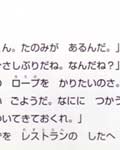 ん。たのみが あるんだ。」
さしぶりだね。なんだね？」
の ロープを かりたいのさ。
い ごようだ。なにに つかう
ついてきておくれ。」
を レストランの したへ